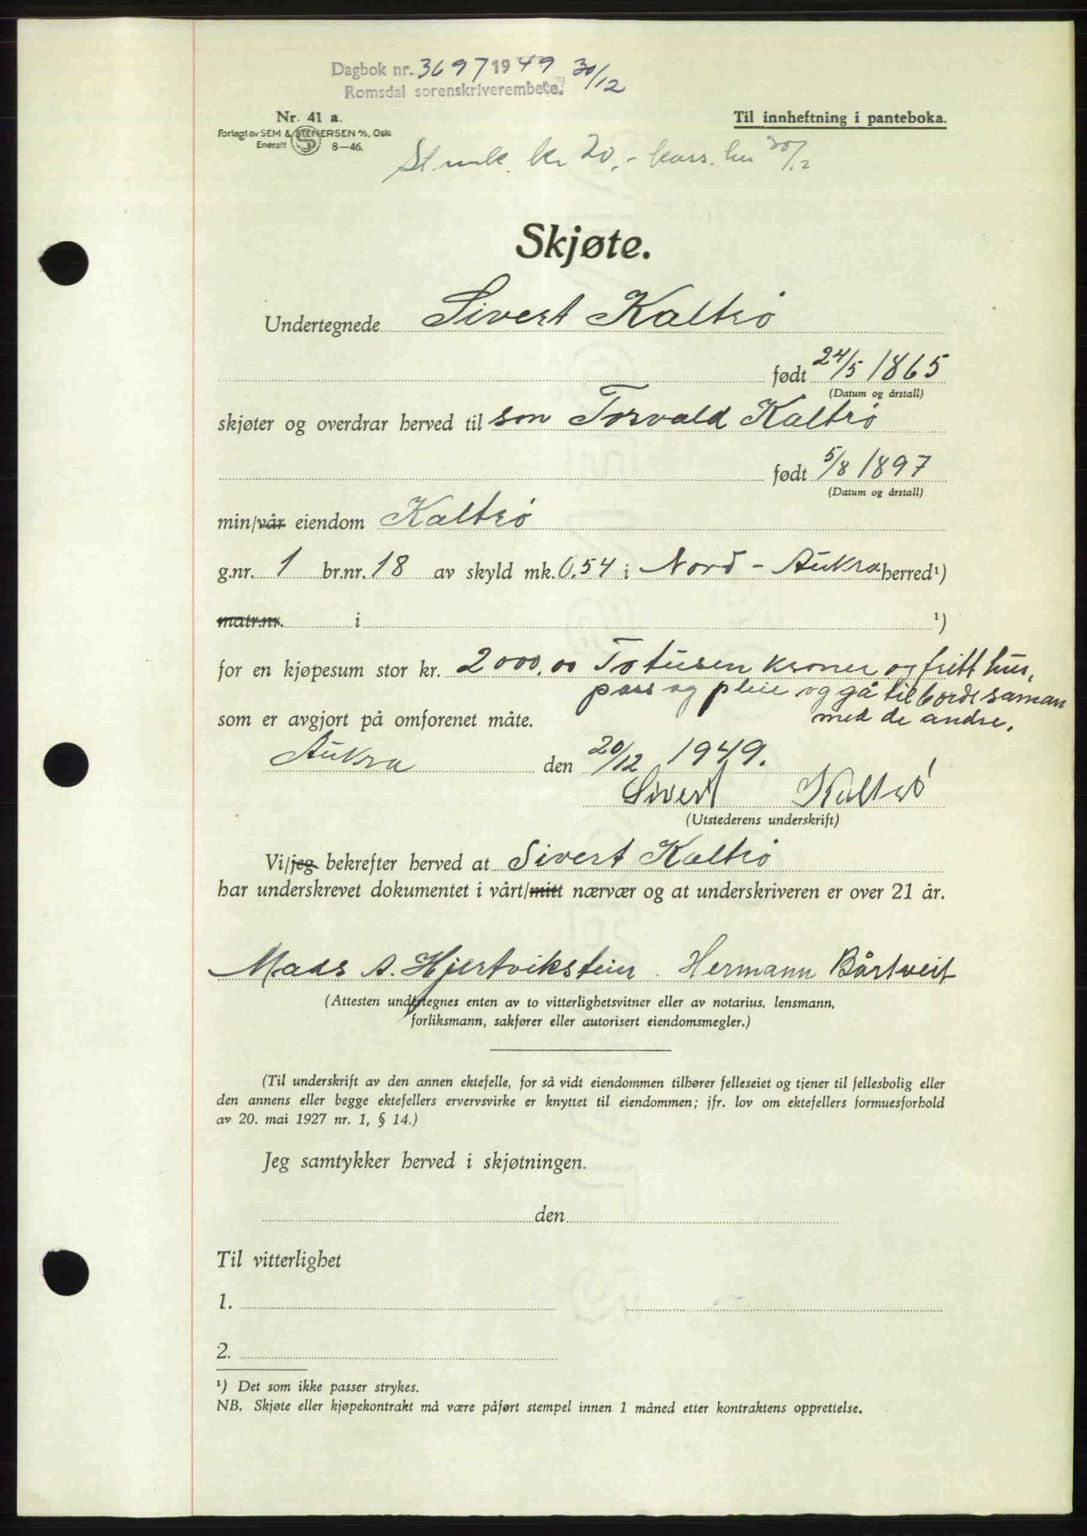 Dagbok nr. 3697 1949 30/12
Romsdal sorenskriverembete.
Nr. 41 a.
Til innheftning i panteboka.
Forlagt av SEM & STENERSEN A/S, Oslo
Enerett SP 8—46.
St.mk. kr 20,- kass. her 30/12
Skjøte.
Undertegnede Sivert Kaltrø
født 24/5 1865
(Datum og årstall)
skjøter og overdrar herved til son Torvald Kaltrø
født 5/8 1897
(Datum og årstall)
min/vår eiendom Kaltrø
g.nr. 1 br.nr. 18 av skyld mk. 0.54 i Nord - Aukra herred¹)
matr.nr. i ¹)
for en kjøpesum stor kr. 2000,00 Totusen kroner og fritt hus,
pass og pleie og gå til bords saman
som er avgjort på omforenet måte. med de andre.
Aukra den 20/12 1949.
Sivert Kaltrø
(Utstederens underskrift)
Vi/jeg bekrefter herved at Sivert Kaltrø
har underskrevet dokumentet i vårt/mitt nærvær og at underskriveren er over 21 år.
Mads A. Hjertvikstein. Hermann Bårtveit
(Attesten undertegnes enten av to vitterlighetsvitner eller av notarius, lensmann,
forliksmann, sakfører eller autorisert eiendomsmegler.)
(Til underskrift av den annen ektefelle, for så vidt eiendommen tilhører felleseiet og tjener til fellesbolig eller
den annens eller begge ektefellers ervervsvirke er knyttet til eiendommen; jfr. lov om ektefellers formuesforhold
av 20. mai 1927 nr. 1, § 14.)
Jeg samtykker herved i skjøtningen.
den
Til vitterlighet
1.
2.
¹) Det som ikke passer strykes.
NB. Skjøte eller kjøpekontrakt må være påført stempel innen 1 måned etter kontraktens opprettelse.